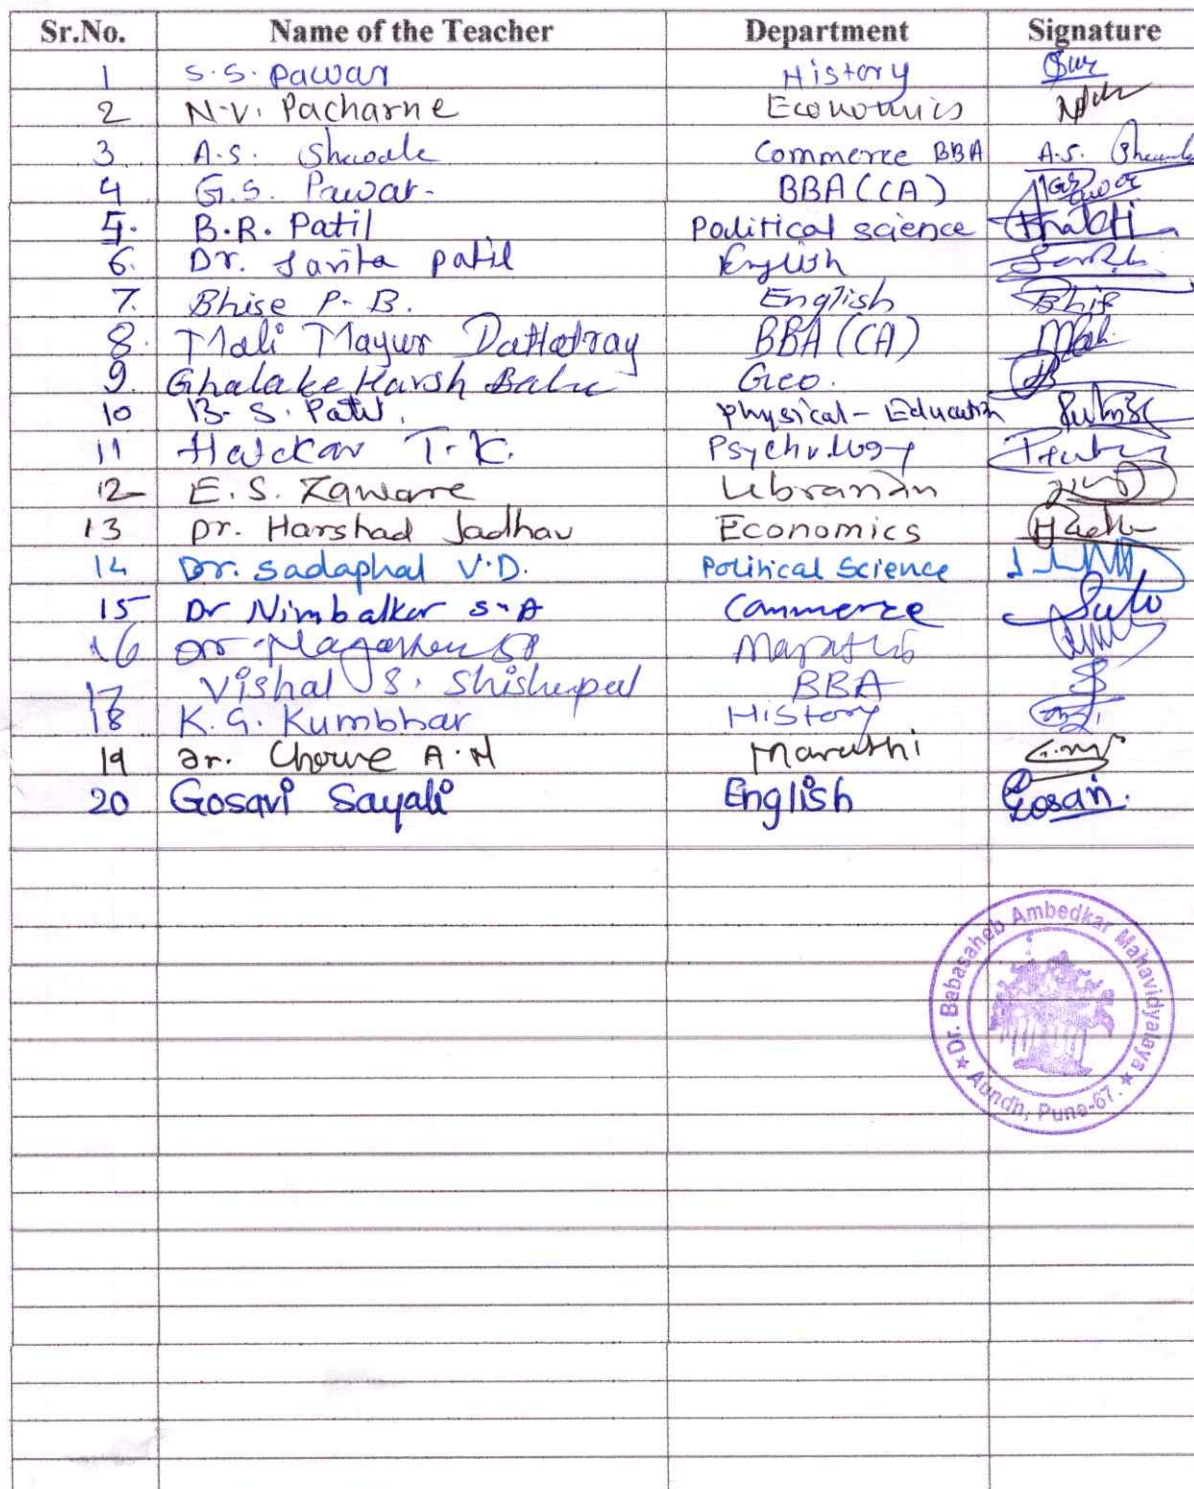 Sr.No. Name of the Teacher Department Signature
1 S.S. Pawar History
2 N.V. Pacharne Economics
3 A.S. Commerce BBA A.S.
4 G.S. Pawar BBA (CA)
5. B.R. Patil Political science
6. Dr. Sarita patil English
7. Bhise P.B. English
8. Mali Mayur Dattatray BBA (CA)
9. Ghalake Harsh Geo.
10 B.S. Patil. Physical-Education
11 Hatckar T.K. Psychology
12 E.S. Zaware Librarian
13 Dr. Harshad Jadhav Economics
14 Dr. Sadaphal V.D. Political Science
15 Dr Nimbalkar S.A Commerce
16 Marathi
17 Vishal S. Shishupal BBA
18 K.G. Kumbhar History
19 Dr. A.N Marathi
20 Gosavi Sayali English Gosavi.
Dr. Babasaheb Ambedkar Mahavidyalaya
Aundh, Pune-67.